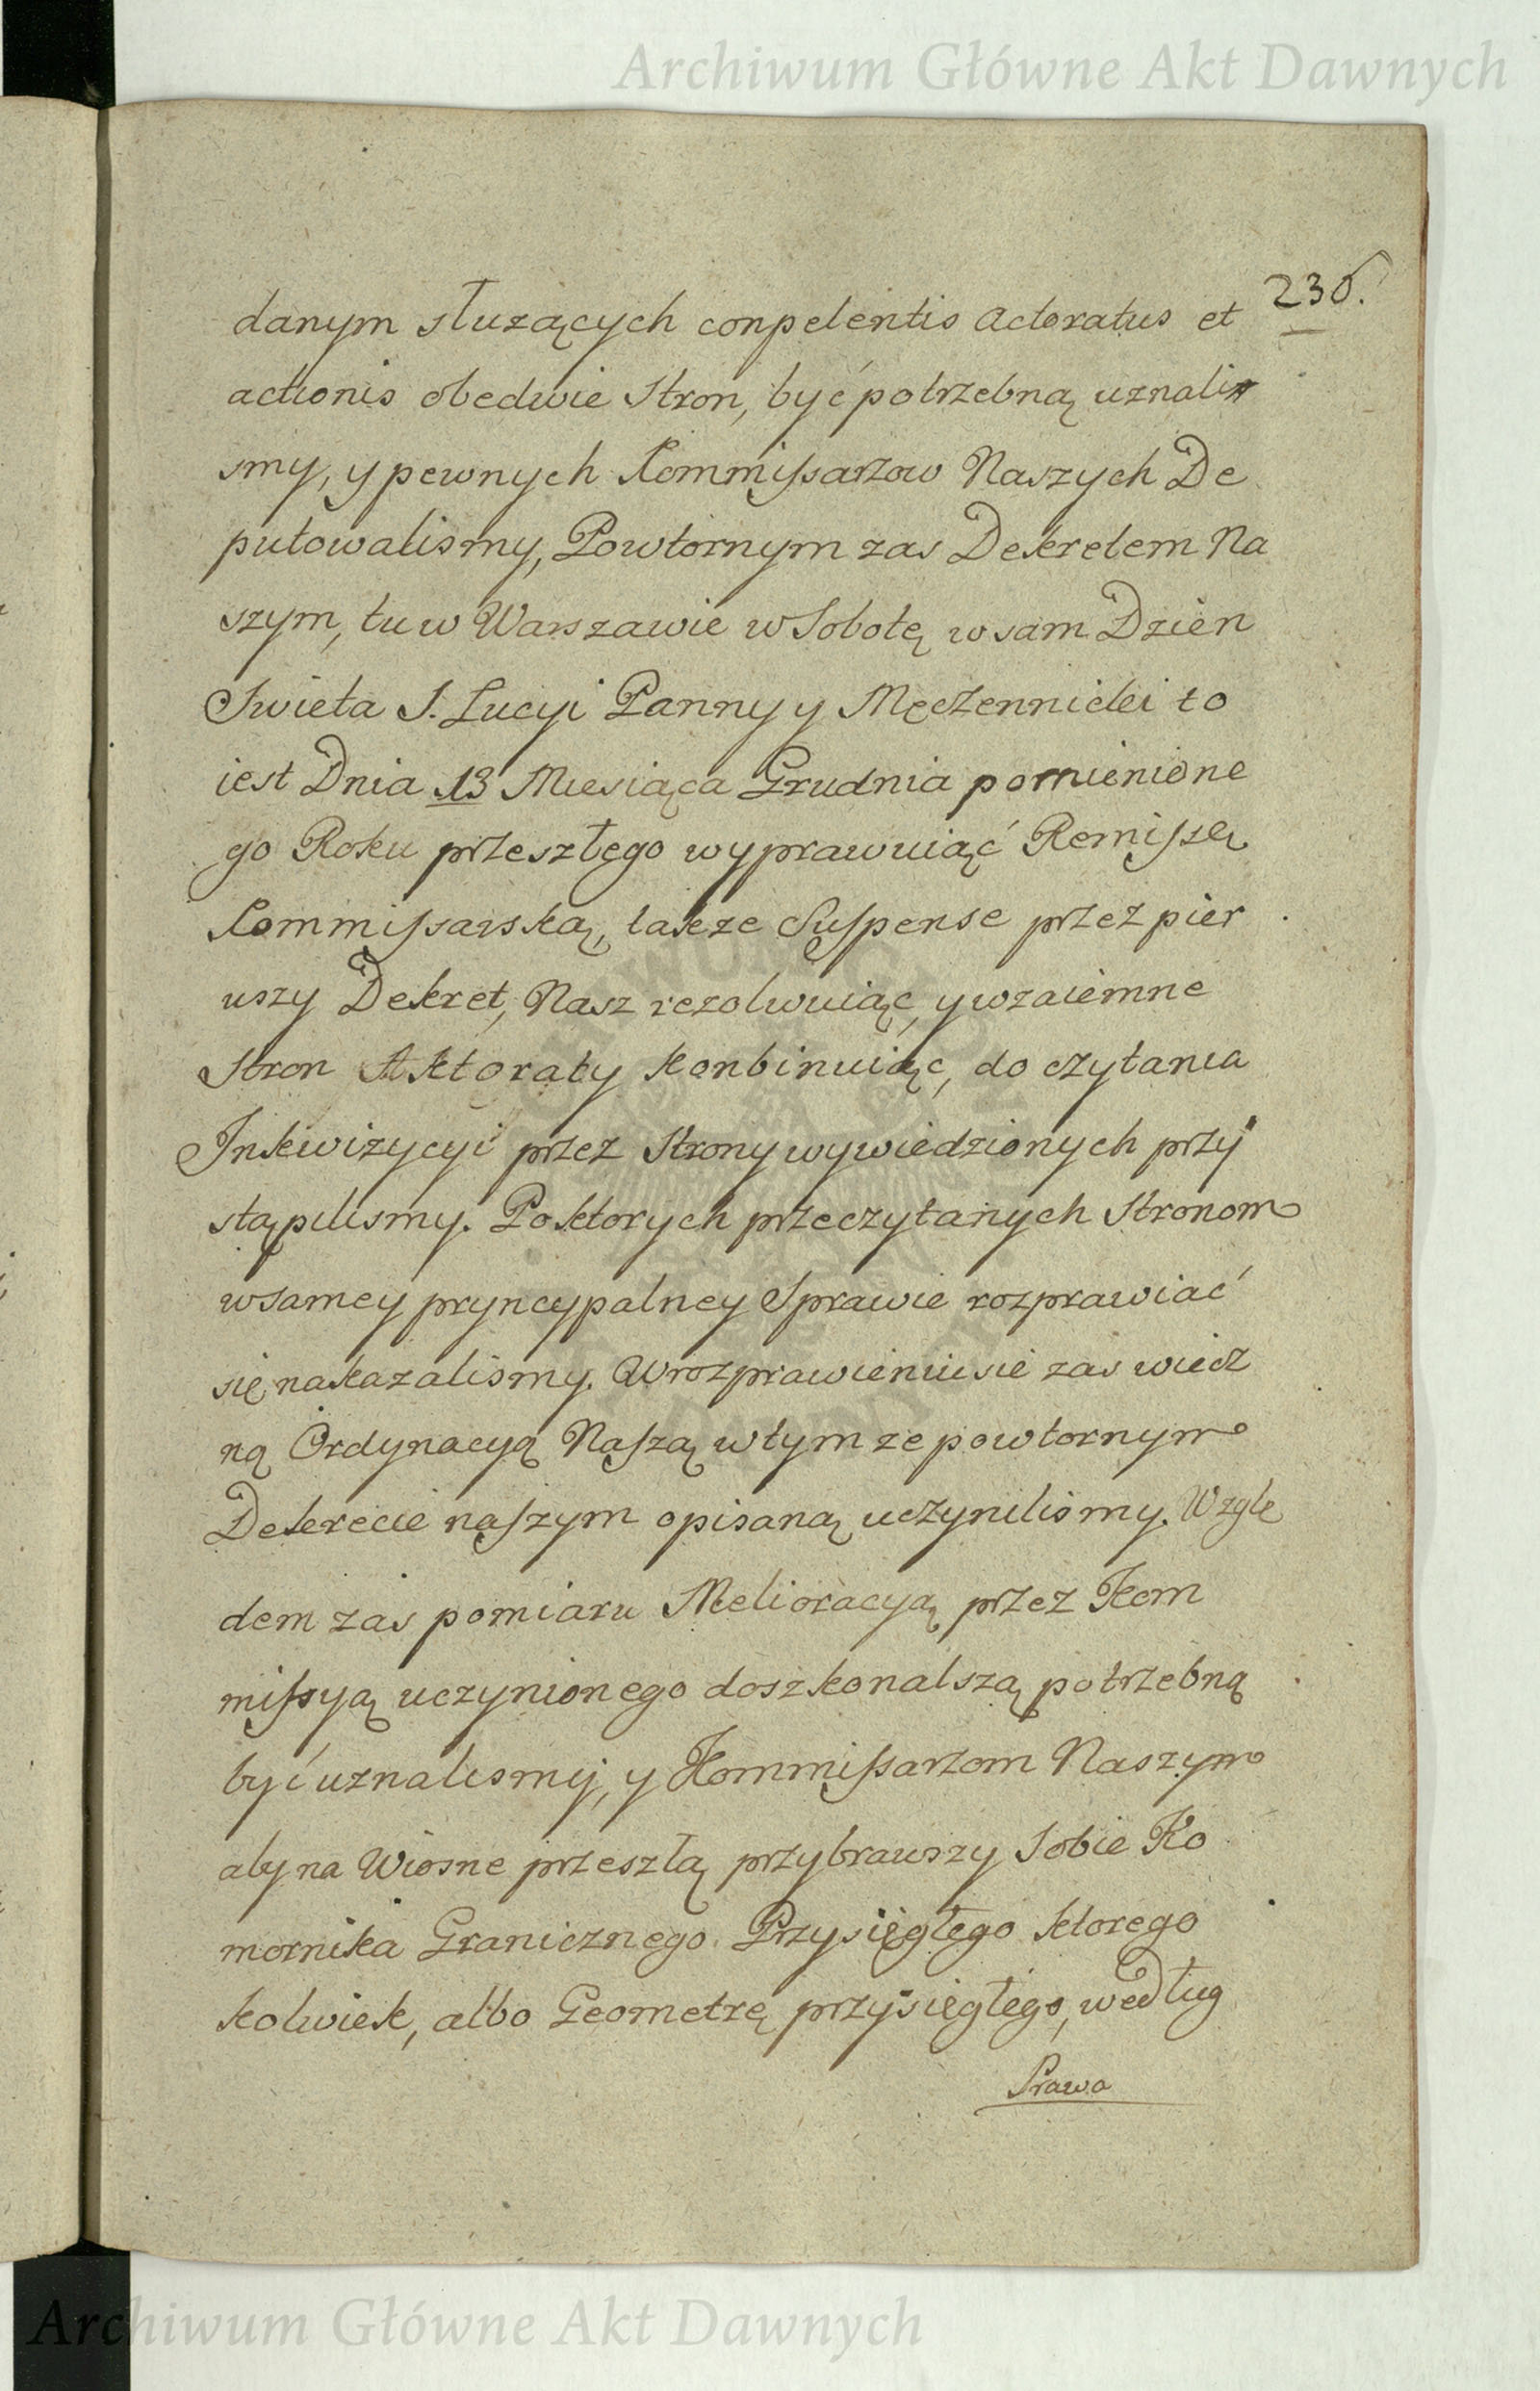 Archiwum Główne Akt Dawnych
236.
danym służących conpetentis actoratus et
actionis obedwie Stron, być potrzebną uznali
smy, y pewnych Kommissarzow Naszych De
putowalismy, Powtornym zas Dekretem Na
szym, tu w Warszawie w Sobotę w sam Dzien
Swieta S. Lucyi Panny y Męczenniczki to
iest Dnia 13 Miesiąca Grudnia pomienione
go Roku przeszłego wyprawuiąć Remissę
Kommissarską, takze Suspense przez pier
wszy Dekret, Nasz rezolwuiąc, y wzaiemne
Stron Aktoraty konbinuiąc, do czytania
Inkwizycyi przez Strony wywiedzionych przy
stąpilismy. Po ktorych przeczytanych Stronom
w samey pryncypalney Sprawie rozprawiać
się nakazalismy. W rozprawieniu sie zas wiecz
ną Ordynacyą Naszą w tym ze powtornym
Dekrecie naszym opisaną uczynilismy. Wzglę
dem zas pomiaru Melioracyą przez Kom
missyą uczynionego doszkonalszą potrzebną
być uznalismy, y Kommissarzom Naszym
aby na Wiosne przeszłą przybrawszy Sobie Ko
mornika Granicznego Przysięgłego ktorego
kolwiek, albo Geometrę przysięgłego, według
Prawa
Archiwum Główne Akt Dawnych